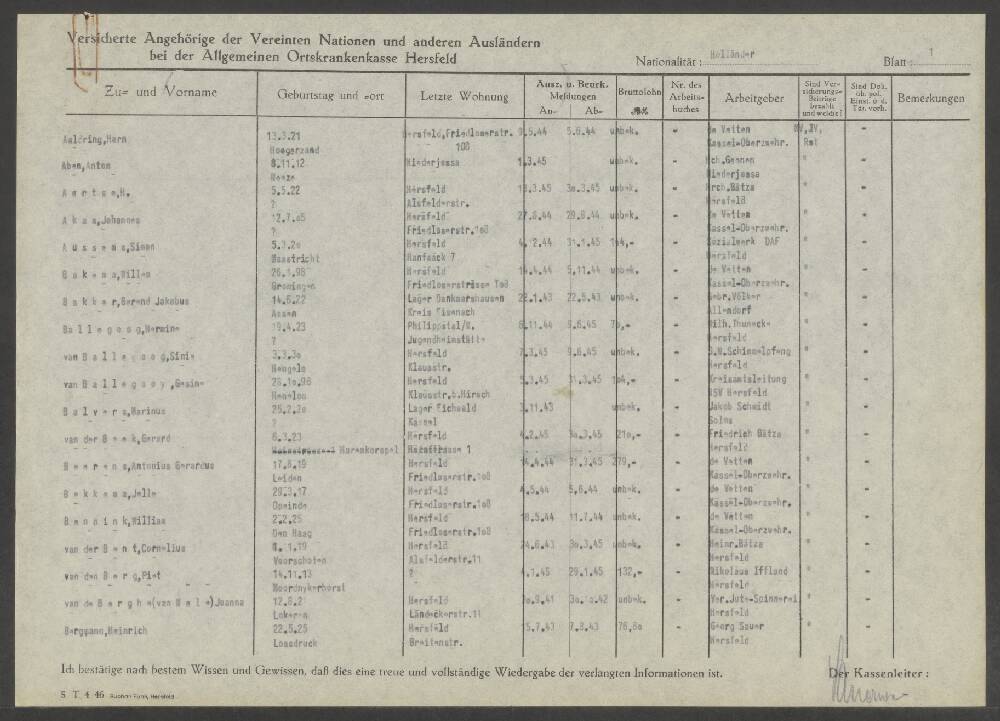 Versicherte Angehörige der Vereinten Nationen und anderen Ausländern
bei der Allgemeinen Ortskrankenkasse Hersfeld
Nationalität : Holländer
Blatt : 1
Zu- und Vorname
Geburtstag und -ort
Letzte Wohnung
Ausz. u. Beurk. Meldungen An- Ab-
Bruttolohn
Nr. des Arbeits-buches
Arbeitgeber
Sind Ver-sicherungs-Beiträge bezahlt und welche?
Bemerkungen
13.3.21 Hersfeld,Friedloserstr. 5.6.44 unbek. - de Vetten
Hoogezand 108 Kassel-Oberzwehr. Rmt
Aben,Anton 8.11.12 Niederjossa 1.3.45 unbek. - "
Niederjossa
Aertse,H. 5.5.22 Hersfeld 3o.3.45 unbek. - Bätza "
? Alsfelderstr. Hersfeld
Akas,Johannes 12.7.o5 Hersfeld 29.8.44 unbek. - de Vetten "
? Friedloserstr.1o8 Kassel-Oberzwehr.
Aussems,Simon 5.3.2o Hersfeld 4.12.44 31.1.45 1o4,- - Sozialwerk DAF "
Maastricht Hanfsack 7 Hersfeld
Bakema,Willem 26.1.98 Hersfeld 5.11.44 unbek. - de Vetten "
Groningen Friedloserstrasse 1o8 Kassel-Oberzwehr.
Bakker,Berend Jakobus 14.6.22 Lager Dankmarshausen 22.1.43 22.5.43 unbek. - Gebr.Völker "
Assen Kreis Eisenach Allendorf
Ballegoog,Hermine 19.4.23 Philippstal/W. 6.11.44 7o,- - Wilh.Thunecke "
? Jugendheimstätte Hersfeld
van Ballegoog,Sini 3.3.3o Hersfeld 7.3.45 unbek. - Schimmelpfeng "
Hengelo Klausstr. Hersfeld
van Ballegooy,Gesine 28.1o.96 Hersfeld 5.3.45 31.3.45 1o4,- - Kreisamtsleitung "
Hengelon Klausstr.b.Hirsch NSV Hersfeld
Balvers,Marinus 25.2.2o Lager Eichwald 3.11.43 unbek. - Jakob Schmidt "
? Kassel Solms
van der Beek,Gerard 6.3.23 Hersfeld 4.2.45 3o.3.45 21o,- - Friedrich Bätza "
Harenkarspel 1 Hersfeld
Beerens,Antonius Gerardus 17.6.19 Hersfeld 4.4.44 31.3.45 279,- - de Vetten "
Leiden Friedloserstr.1o8 Kassel-Oberzwehr.
Bekkema,Jelle 29.3.17 Hersfeld 4.5.44 5.6.44 unbek. - de Vetten "
Friedloserstr.1o8 Kassel-Oberzwehr.
Bennink,William 2.2.25 Hersfeld 18.5.44 11.7.44 unbek. - de Vetten "
Den Haag Friedloserstr.1o8 Kassel-Oberzwehr.
van der Bent,Cornelius Hersfeld 24.6.43 3o.3.45 unbek. - Heinr.Bätza "
Voorschoten Alsfelderstr.11 Hersfeld
van den Berg,Piet 14.11.13 ? 4.1.45 29.1.45 132,- - Nikolaus Iffland "
Noordwykerhorst Hersfeld
van de Berghe(van Hele)Joanna 12.8.21 Hersfeld 3o.1o.42 unbek. - Ver.Jute-Spinnerei "
Lokeren Landeckerstr.11 Hersfeld
Bergmann,Heinrich 22.5.25 Hersfeld 5.7.43 7.8.43 76,8o - Georg Sauer "
Loosdruck Breitenstr. Hersfeld
Ich bestätige nach bestem Wissen und Gewissen, daß dies eine treue und vollständige Wiedergabe der verlangten Informationen ist.
Der Kassenleiter :
S. T. 4 46